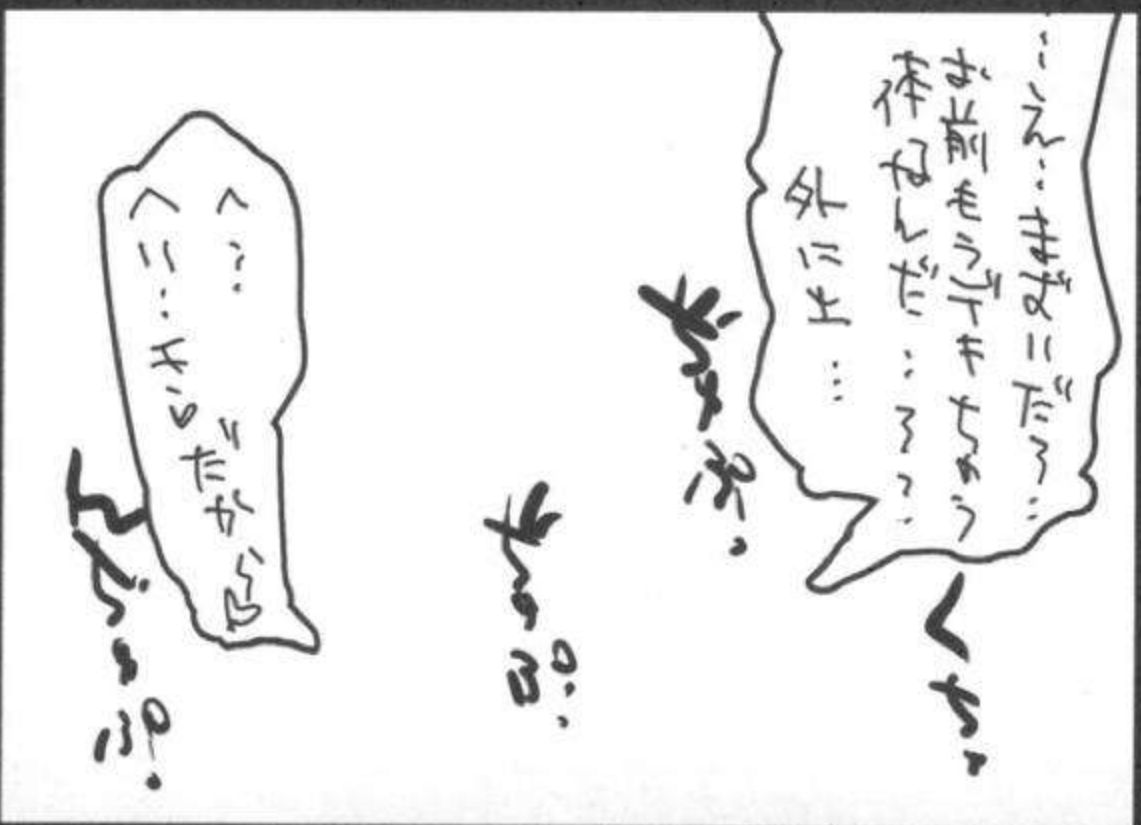 …え…まずいだろ…
お前もうデキちゃう
体なんだ…ろっ…
外に出…
くちゅ
ちゅぷ。
ちゅぽ。
へ…
へい…き♡
だから♡
ちゅぷ。